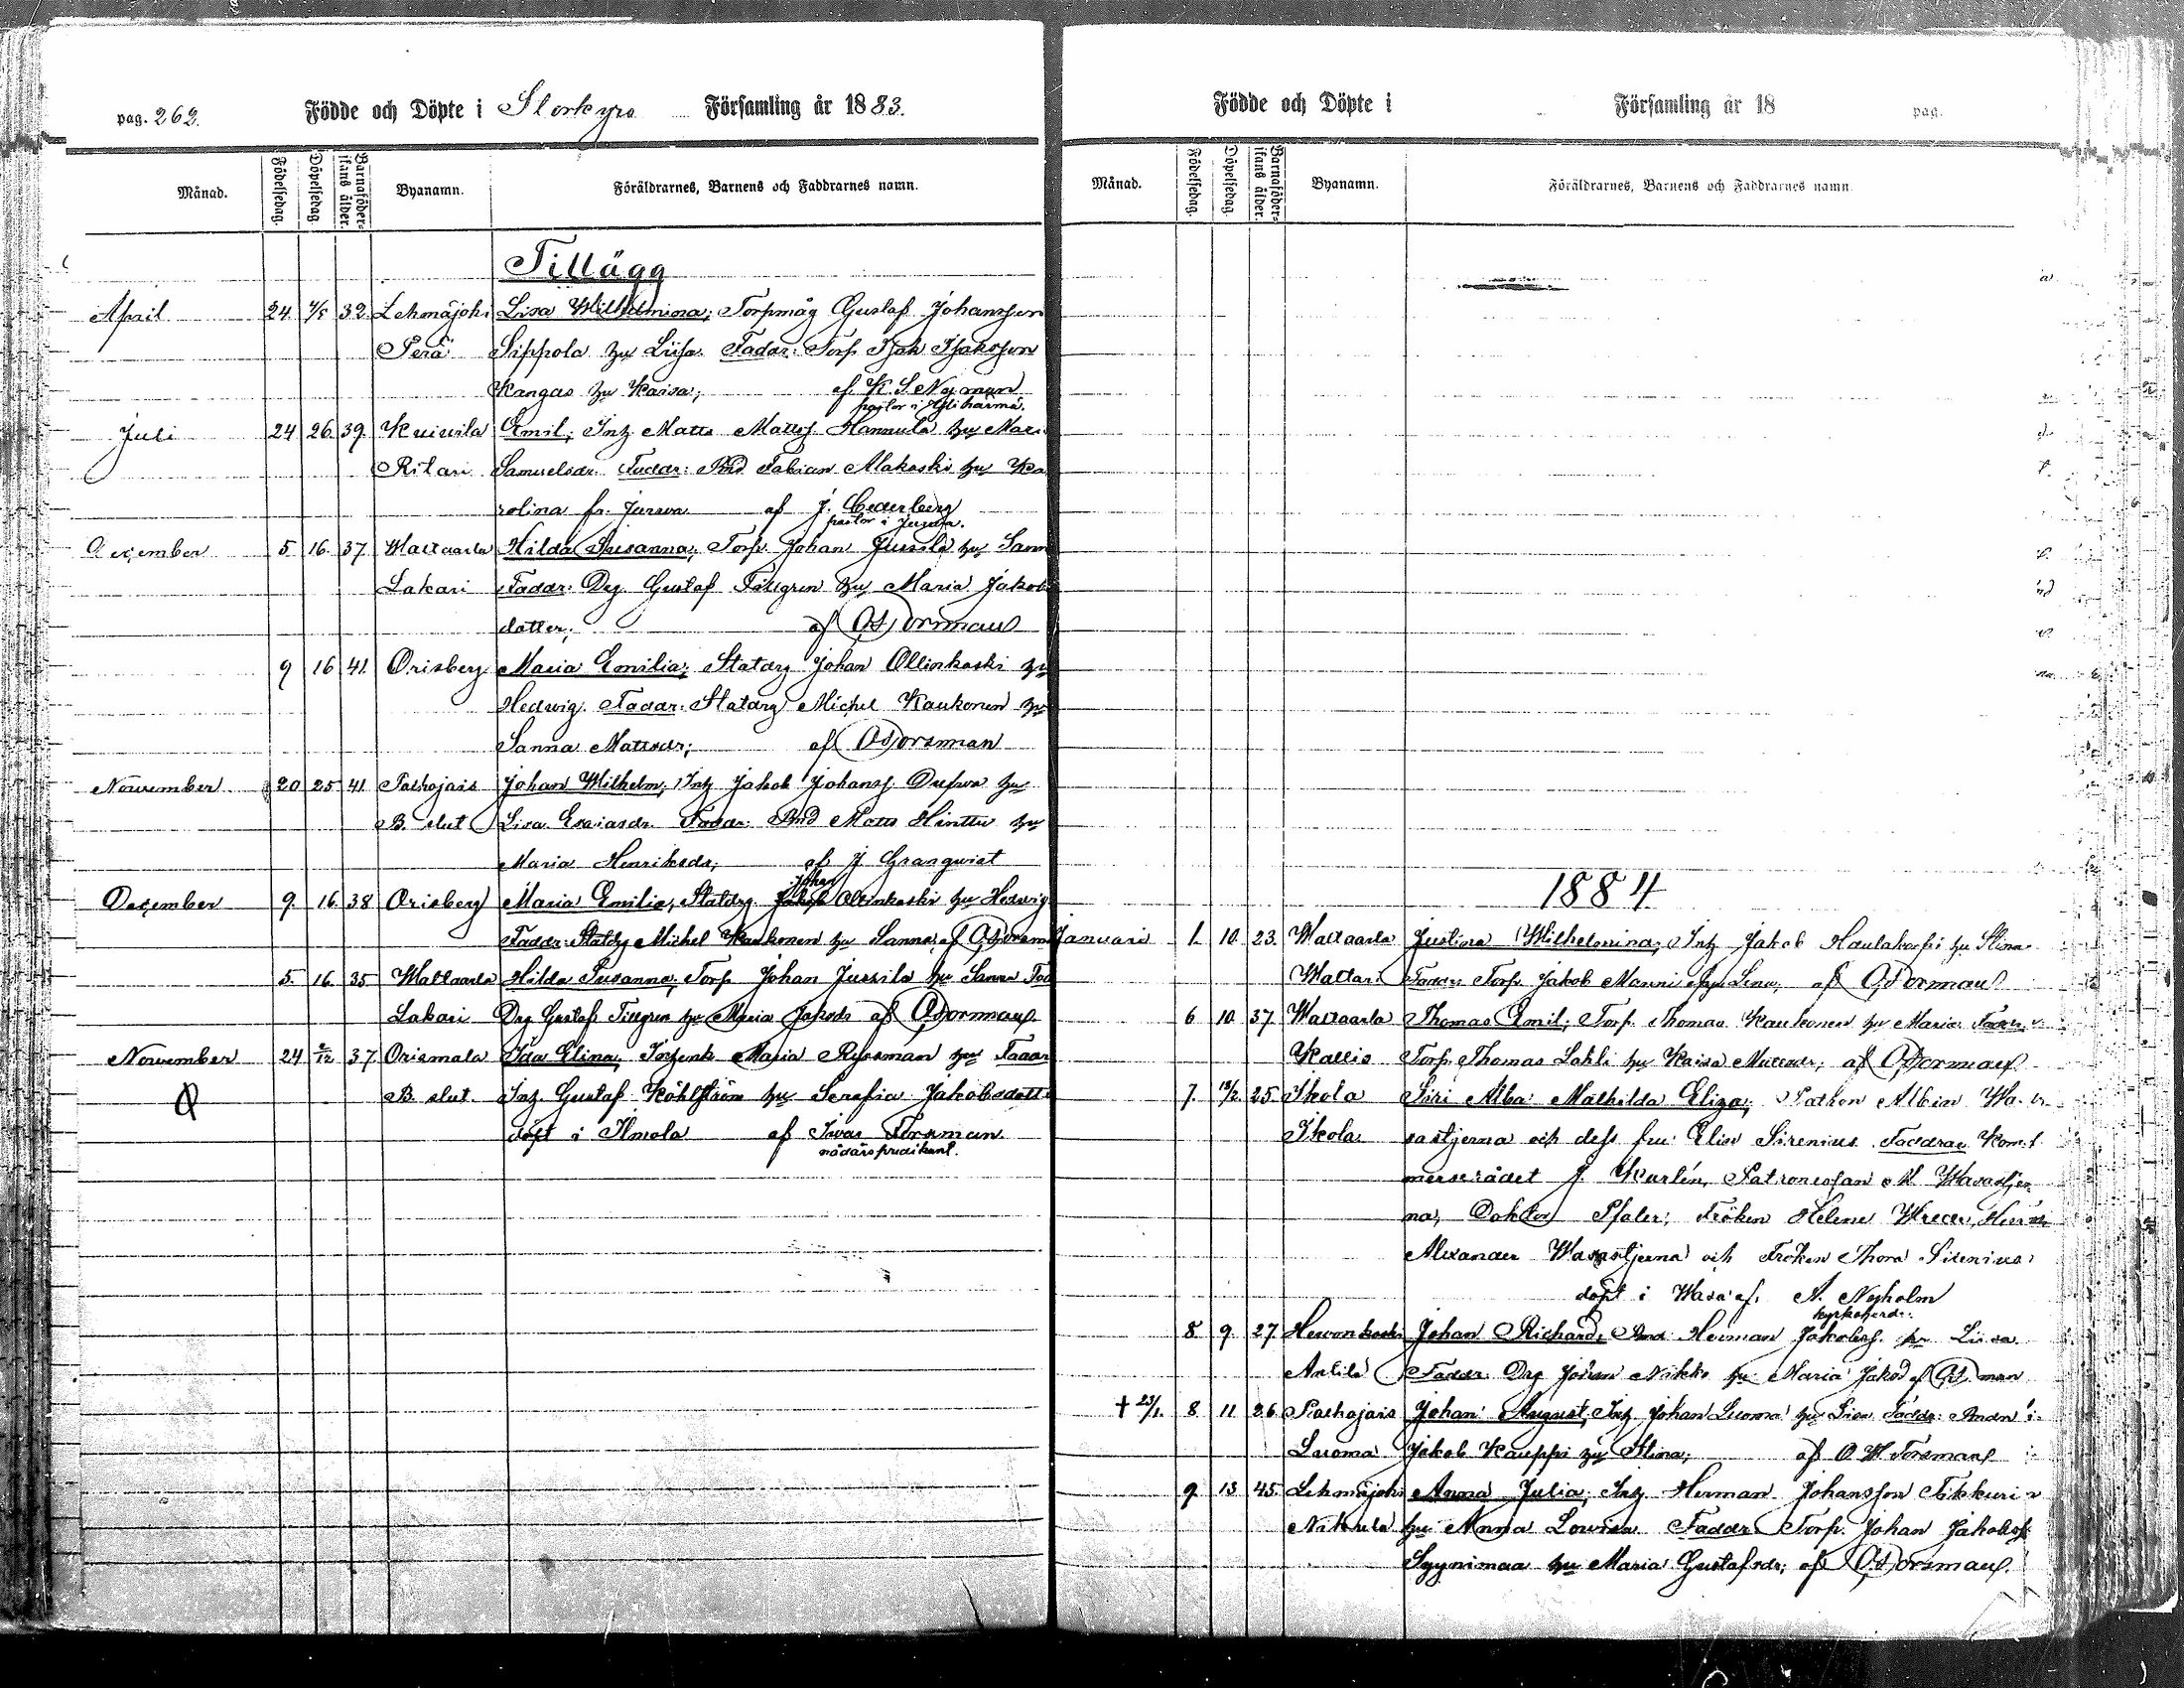 pag. 262.
Födde och Döpte i Storkyro Församling år 1883.
Månad. Födelsedag. Döpelsedag. Barnaföderskans ålder. Byanamn. Föräldrarnes, Barnens och Faddrarnes namn.
Tillägg
April 24 4/5 32. Lehmäjoki Lisa Wilhelmina; Torpmåg Gustaf Johansson
Perä Sippola hu Liisa. Faddr: Torp Isak Isaksson
Kangas hu Kaisa; af K. S. Nyman
pastor i Ylihärmä.
Juli 24 26 39. Kuivila Emil; Inh Matts Mattss. Hannula hu Mari
Ritari Samuelsdr. Faddr: Bnd Fabian Alakoski hu Ka
rolina fr. Jurva af J. Cederberg
pastor i Jurva.
December 5. 16. 37 Waltaarla Hilda Susanna; Torp. Johan Jussila hu Sann
Lakari Faddr: Drg Gustaf Tillgren hu Maria Jakobs
dotter; af Forsman
9 16 41. Orisberg Maria Emilia; Statdrg Johan Ollinkoski hu
Hedwig. Faddr: Statdrg Michel Kaukonen hu
Sanna Mattsdr; af Forsman
November 20 25 41. Palhojais Johan Wilhelm; Inh Jakob Johanss. Dufva hu
B. slut Lisa Esaiasdr. Faddr: Bnd Matts Hinttu hu
Maria Henriksdr; af J Granqvist
Johan
December 9. 16. 38 Orisberg Maria Emilia; Statdrg Jakob Ollinkoski hu Hedwig
Faddr: Statdrg Michel Kaukonen hu Sanna; af Forsm
5. 16. 35 Waltaarla Hilda Susanna; Torp Johan Jussila hu Sanna Fad
Lakari Drg Gustaf Tillgren hu Maria Jakobs af Forsman
November 24 2/12 37. Orismala Ida Elina; Inhenk Maria Ryssman Faddr
B. slut Inh. Gustaf Köhlström hu Serafia Jakobsdott
döpt i Ilmola af Ivar Forsman.
nådårspredikant.
Födde och Döpte i Församling år 18 pag.
Månad. Födelsedag. Döpelsedag. Barnaföderskans ålder. Byanamn. Föräldrarnes, Barnens och Faddrarnes namn.
1884
Januari 1. 10. 23. Waltaarla Justina Wilhelmina; Inh Jakob Hautakorpi hu Stina
Waltari Faddr: Torp. Jakob Manni hu Lena; af Forsman
6 10. 37. Waltaarla Thomas Emil; Torp. Thomas Kaukonen hu Maria Faddr:
Kallio Torp. Thomas Lahti hu Kaisa Mattsdr; af Forsman
7. 18/2 25 Ikola Siri Alba Mathilda Eliza; Patron Albin Wa-
Ikola sastjerna och dess fru Elin Sirenius Faddrar Kom-
merserådet J. Karlén, Patronessan M. Wasastjer
na, Doktor Pfaler; Fröken Helene Wrede, Herr
Alexander Wasastjerna och Fröken Thora Sirenius
döpt i Wasa af A. Nyholm
kyrkoherde.
8 9. 27. Hewonkoski Johan Richard; Bnd Herman Jakobss. hu Lisa
Antila Faddr: Drg Johan Nikko hu Maria Jakobd af man
† 23/1. 8 11 26. Palhojais Johan August; Inh Johan Luoma hu Lisa Faddr: Bndn
Luoma Jakob Kauppi hu Stina; af O W Forsman
9. 13 45. Lehmäjoki Anna Julia; Inh. Herman Johansson Tikkuri
Nikula hu Anna Lovisa Faddr: Torp. Johan Jakobss.
Syynimaa hu Maria Gustafsdr; af Forsman.